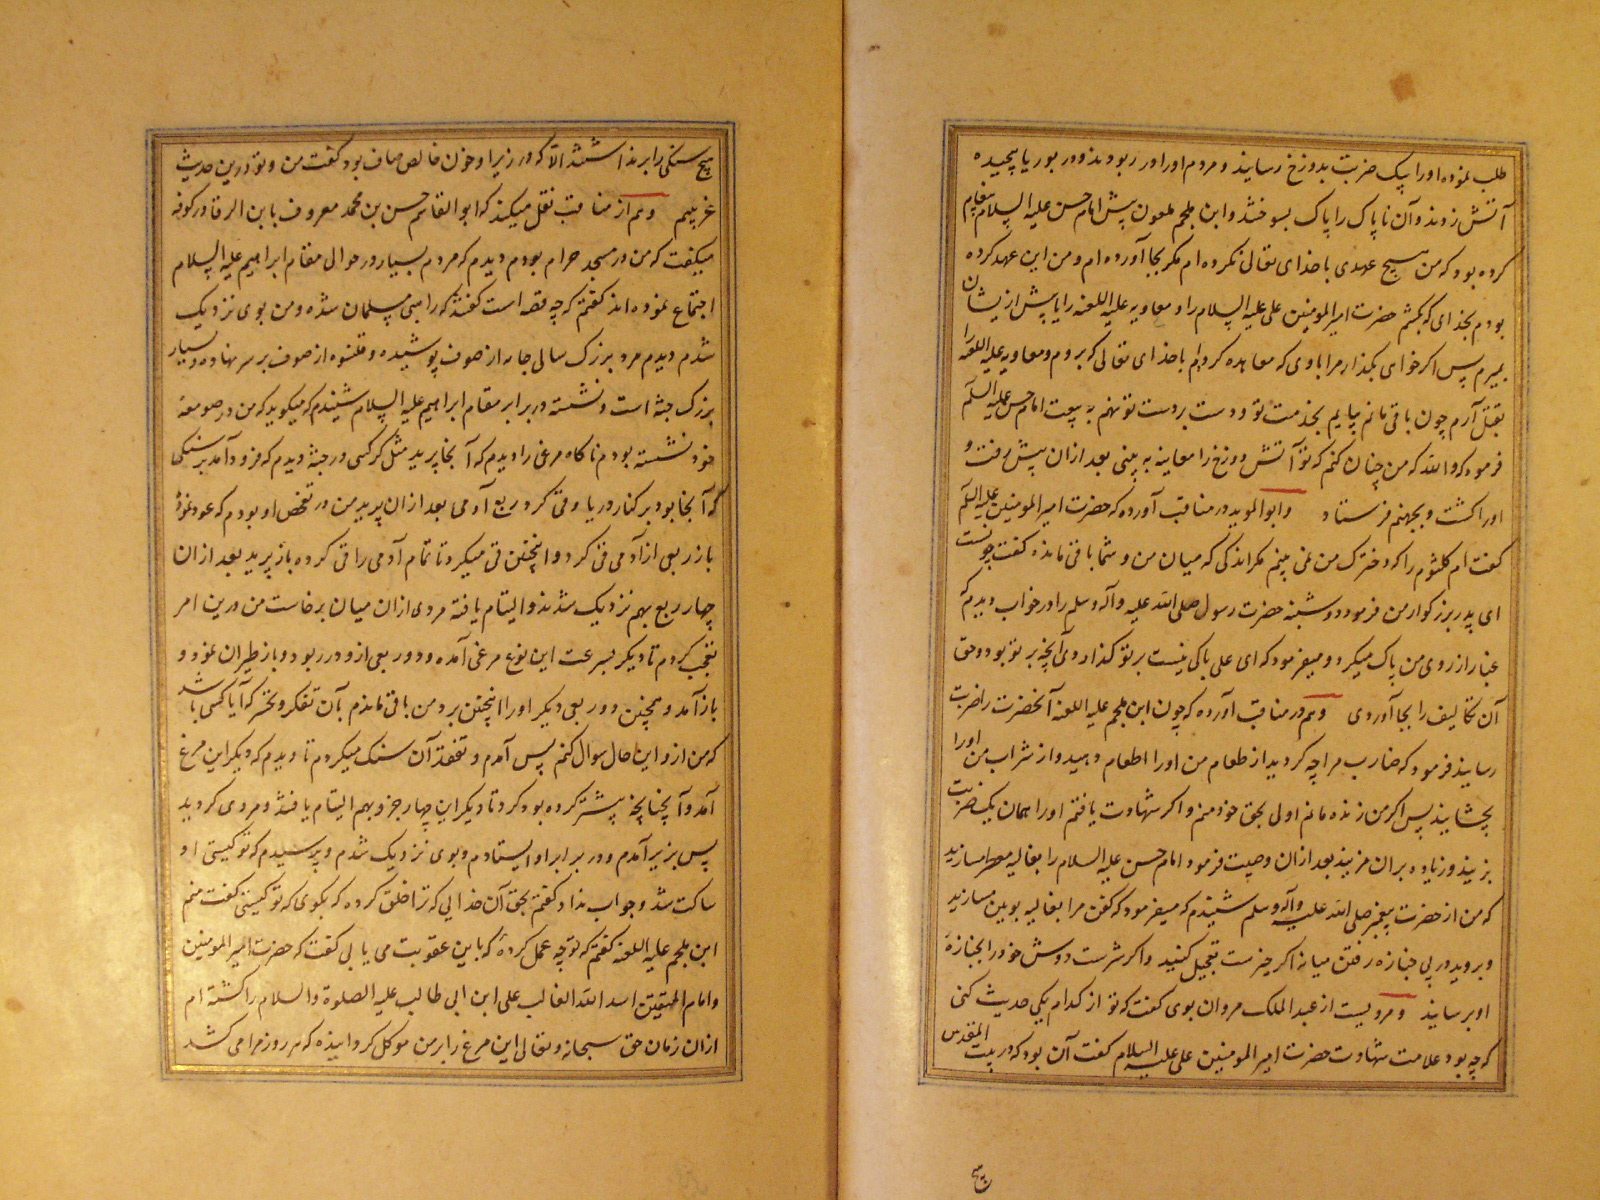 طلب نموده او را بیک ضربت بدوزخ رسانیدند و مردم او را در ربودند و در بوریا پیچیده
آتش زدند و آن ناپاک را پاک بسوختند و ابن ملجم ملعون پیش امام حسن علیه السلام پیغام
کرده بود که من هیچ عهدی با خدای تعالی نکرده ام مگر بجا آورده ام و من این عهد کرده
بودم بخدای که بکشم حضرت امیر المومنین علی علیه السلام را و معاویه علیه اللعنه را یا پیش ازیشان
بمیرم پس اگر خوای بگذار مرا با وی که معاهده کرده ام با خدای تعالی که بروم و معاویه علیه اللعنه را
بقتل آرم چون باقی مانم بیایم بخدمت تو و دست بر دست تو نهم به بیعت امام حسن علیه السلم
فرمود که والله که من چنان کنم که تو آتش دوزخ را معاینه به بینی بعد ازان پیش رفت و
او را کشت و بجهنم فرستاد و ابو الموید در مناقب آورده که حضرت امیر المومنین علیه السلم
گفت ام کلثوم را که دخترک من نمی بینم مگر اندکی که میان من و شما باقی مانده گفت چونست
ای پدر بزرگوار من فرمود دوشینه حضرت رسول صلی الله علیه وآله وسلم را در خواب دیدم که
غبار از روی من پاک میکرد و میفرمود که ای علی باکی نیست بر تو گذاردی آنچه بر تو بود و حق
آن تکالیف را بجا آوردی و هم در مناقب آورده که چون ابن ملجم علیه اللعنه آنحضرت را ضربت
رسانید فرمود که ضارب مرا چه کردید از طعام من او را اطعام دهید و از شراب من او را
بچشانید پس اگر من زنده مانم اولی بحق خود منم و اگر شهادت یافتم او را همان یک ضربت
بزنید و زیاده بران مزنید بعد ازان وصیت فرمود امام حسن علیه السلام را بغالیه معطر مسازید
که من از حضرت پیغمبر صلی الله علیه وآله وسلم شنیدم که میفرمود که کفن مرا بغالیه بوبین مسازید
و بروید در پی جنازه رفتن میانه اگر خیرست تعجیل کنید و اگر شرست دوش خود را بجنازهٔ
او برسانید و مرویست از عبد الملک مروان بوی گفت که تو از کدام یکی حدیث کنی
که چه بود علامت شهادت حضرت امیر المومنین علی علیه السلام گفت آن بود که در بیت المقدس
هیچ
هیچ سنگی را برنداشتند الا که در زیر او خون خالص صاف بود گفت من و تو درین حدیث
غریبیم و هم از مناقب نقل میکند که ابو القاسم حسن بن محمد معروف بابن الرفا در کوفه
میگفت که من در مسجد حرام بودم دیدم که مردم بسیار در حوالی مقام ابراهیم علیه السلام
اجتماع نموده اند گفتم که چه قصه است گفتند که راهبی مسلمان شده و من بوی نزدیک
شدم دیدم مرد بزرگ سالی جامه از صوف پوشیده و قلنسوه از صوف بر سر نهاده و بسیار
بزرگ جثه است و نشسته در برابر مقام ابراهیم علیه السلام شنیدم که میگوید که من در صومعهٔ
خود نشسته بودم ناگاه مرغی را دیدم که آنجا پرید مثل کرکسی در جثه دیدم که فرود آمد بر سنگی
که آنجا بود بر کنار دریا و قی کرد ربع آدمی بعد ازان پرید من در تفحص او بودم که عود نموده
باز ربعی از آدمی قی کرد و اینچنین قی میکرد تا تمام آدمی را قی کرده باز پرید بعد ازان
چهار ربع بهم نزدیک شدند و التیام یافته مردی ازان میان برخاست من درین امر
تعجب کردم تا دیگر بسرعت این نوع مرغی آمده و دور ربعی ازو در ربود و باز طیران نمود و
باز آمد و همچنین دور ربعی دیگر او را اینچنین برد من باقی ماندم بآن تفکر و تحسر که آیا کسی باشد
که من ازو این حال سوال کنم پس آمدم و تفقد آن سنگ میکردم تا دیدم که دیگر این مرغ
آمد و آنچنانچه پیشتر کرده بود کرد تا دیگر این چهار جزو بهم التیام یافتند و مردی گردید
پس بزیر آمدم و در برابر او ایستادم و بوی نزدیک شدم و پرسیدم که تو کیستی او
ساکت شد و جواب نداد گفتم بحق آن خدایی که ترا خلق کرده که بگوی که تو کیستی گفت منم
ابن ملجم علیه اللعنه گفتم که تو چه عمل کردهٔ که باین عقوبت می یابی گفت که حضرت امیر المومنین
و امام المتقین اسد الله الغالب علی ابن ابی طالب علیه الصلوة والسلام را کشته ام
ازان زمان حق سبحانه و تعالی این مرغ را بر من موکل گردانیده که هر روز مرا می کشد